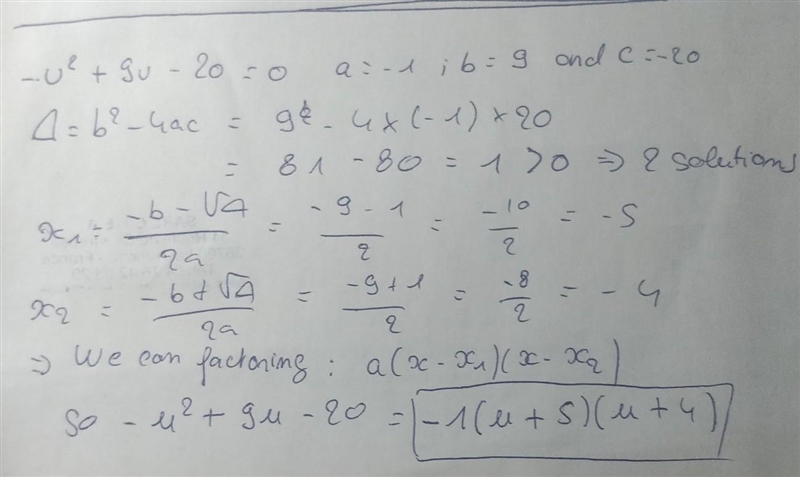 -u² + 9u - 20 = 0 a = -1 ; b = 9 and c = -20
Δ = b² - 4ac = 9² - 4 × (-1) × 20
= 81 - 80 = 1 > 0 ⇒ 2 solutions
x₁ = (-b - √Δ)/2a = (-9 - 1)/2 = -10/2 = -5
x₂ = (-b + √Δ)/2a = (-9 + 1)/2 = -8/2 = -4
⇒ We can factoring : a(x - x₁)(x - x₂)
so -u² + 9u - 20 = -1(u + 5)(u + 4)